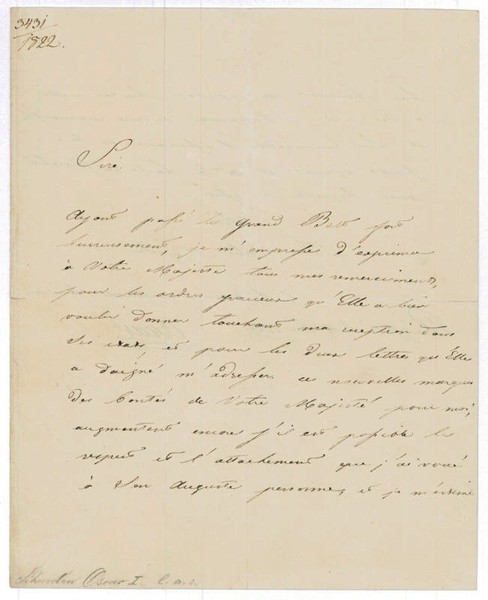 3431
1822.
Sire
Ayant passé le grand Belt fort
heureusement, je m'empresse d'exprimer
à Votre Majesté tous mes remerciments,
pour les ordres gracieux qu'Elle a bien
voulu donner touchant ma reception dans
Ses états, et pour les deux lettres qu'Elle
a daigné m'adresser ces nouvelles marques
des bontés de Votre Majesté pour moi,
augmentent encore s'il est possible le
respect et l'attachement que j'ai voué
à Son Auguste personne, et je m'estime
Oscar I. L. a. s.